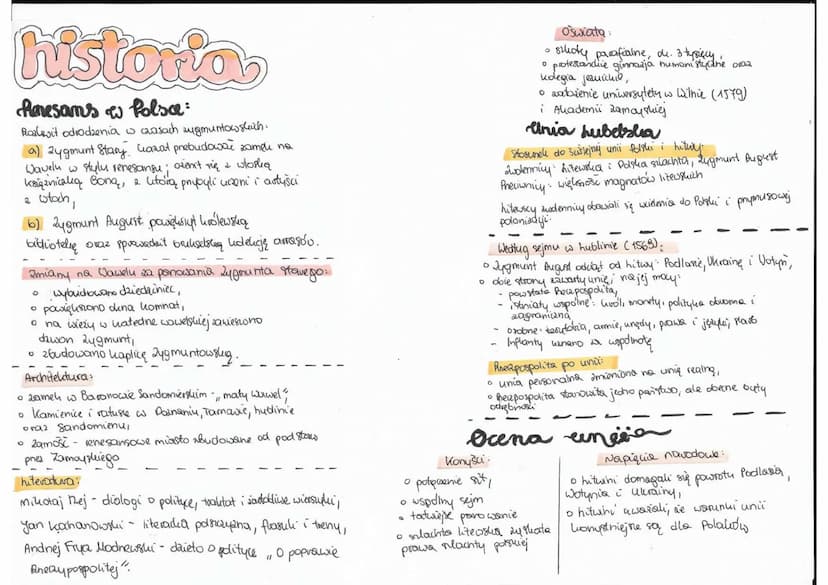 historia
Renesans w Polsce:
Rozkwit odrodzenia w czasach zygmuntowskich:
a) Zygmunt Stary: kazał przebudować zamek na
Wawelu w stylu renesansu; ożenił się z włoską
księżniczką Boną, z którą przybyli uczeni i artyści
z Włoch,
b) Zygmunt August powiększył królewską
bibliotekę oraz sprowadził brukselską kolekcję arrasów.
Zmiany na Wawelu za panowania Zygmunta Starego:
o wybudowano dziedziniec,
o powiększono okna komnat,
o na wieży w katedrze wawelskiej zawieszono
dzwon Zygmunt,
o zbudowano kaplicę Zygmuntowską.
Architektura:
o zamek w Baranowie Sandomierskim - „mały Wawel”,
o kamienice i ratusze w Poznaniu, Tarnowie, Lublinie
oraz Sandomierzu,
o Zamość - renesansowe miasto zbudowane od podstaw
przez Zamoyskiego
Literatura:
Mikołaj Rej - dialogi o polityce, traktat i żartobliwe wierszyki,
Jan Kochanowski - literacka polszczyzna, fraszki i treny,
Andrzej Frycz Modrzewski - dzieło o polityce „O poprawie
Rzeczypospolitej”.
Oświata:
o szkoły parafialne, ok. 3 tysięcy,
o protestanckie gimnazja humanistyczne oraz
kolegia jezuickie,
o założenie uniwersytetu w Wilnie (1579)
i Akademii Zamojskiej
Unia Lubelska
Stosunek do ściślejszej unii Polski i Litwy
Zwolennicy: litewska i polska szlachta, Zygmunt August
Przeciwnicy: większość magnatów litewskich
Litewscy zwolennicy obawiali się wcielenia do Polski i przymusowej
polonizacji.
Według sejmu w Lublinie (1569):
o Zygmunt August odciął od Litwy: Podlasie, Ukrainę i Wołyń,
o obie strony zawarły unię, na jej mocy:
- powstała Rzeczpospolita,
- istniały wspólne: król, monety, polityka obronna i
zagraniczna
- osobne: armie, urzędy, prawa i języki,
- Inflanty uznano za wspólnotę
Rzeczpospolita po unii:
o unia personalna zmieniona na unię realną,
o Rzeczpospolita stanowiła jedno państwo, ale obecne były
odrębności
Ocena unii
Korzyści:
o połączenie sił,
o wspólny sejm
o prawowanie
o szlachta litewska zyskała
prawa szlachty polskiej
Napięcie narodowe:
o Litwini domagali się powrotu Podlasia,
Wołynia i Ukrainy,
o Litwini uważali, że warunki unii
korzystniejsze są dla Polaków